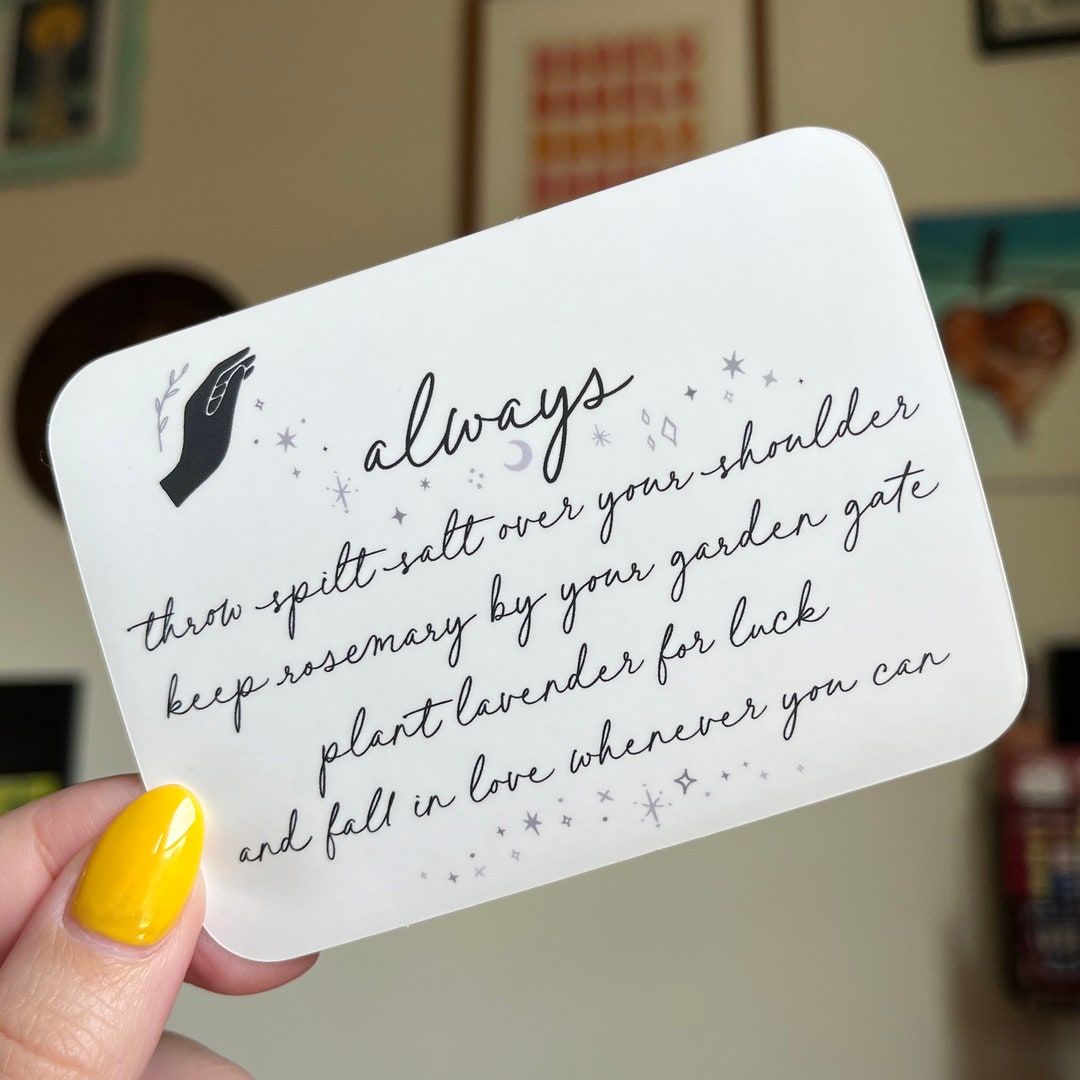 always
throw spilt salt over your shoulder
keep rosemary by your garden gate
plant lavender for luck
and fall in love whenever you can